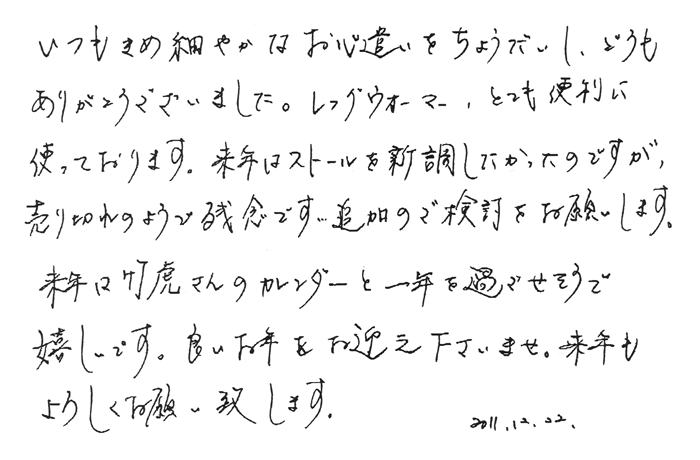 いつもきめ細やかなお心遣いをちょうだいし、どうも
ありがとうございました。レッグウォーマー、とても便利に
使っております。来年はストールを新調したかったのですが、
売り切れのようで残念です…追加のご検討をお願いします。
来年は竹虎さんのカレンダーと一年を過ごせそうで
嬉しいです。良いお年をお迎え下さいませ。来年も
よろしくお願い致します。
2011.12.22.